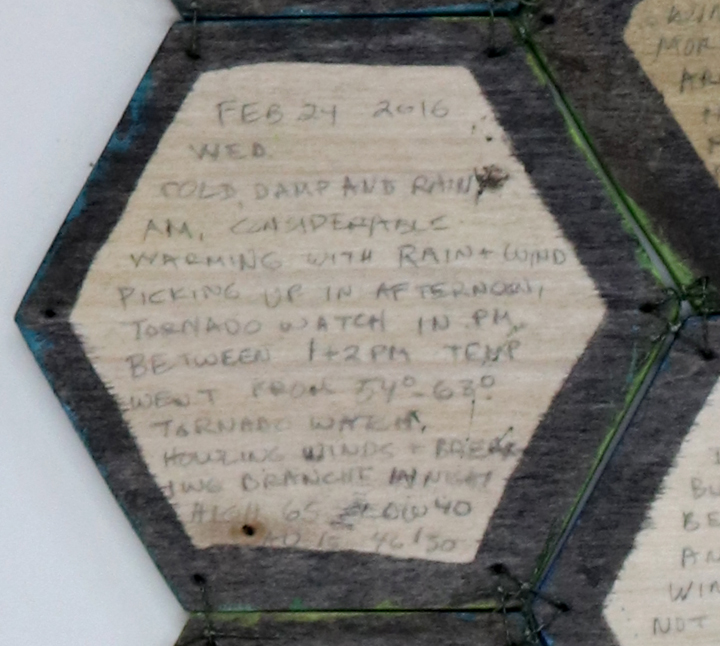 FEB 24 2016
WED.
COLD, DAMP AND RAIN
AM, CONSIDERABLE
WARMING WITH RAIN + WIND
PICKING UP IN AFTERNOON,
TORNADO WATCH IN PM,
BETWEEN 1+2 PM TEMP
WENT FROM 54°-63°
TORNADO WATCH,
HOWLING WINDS + BREAK
ING BRANCHE IN NIGHT
HIGH 65 LOW 40
46 / 50
WIN
MOR
AR
BU
BE
AN
WIN
NOT